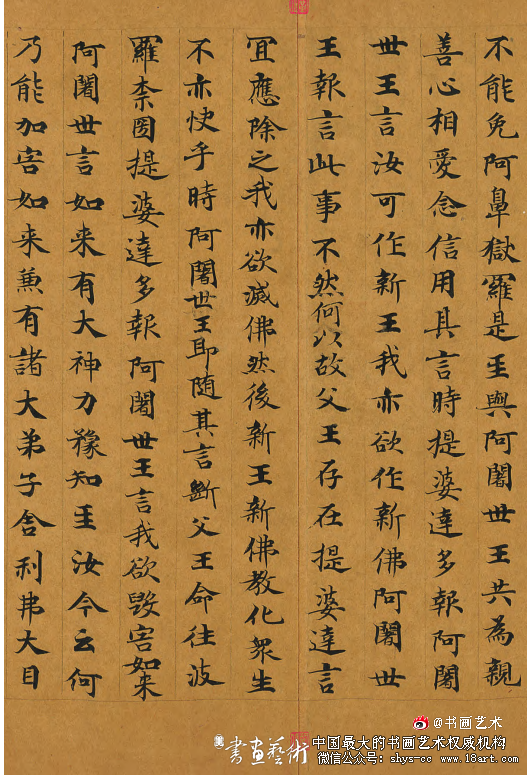 不能免阿鼻獄羅是王與阿闍世王共為親
善心相愛念信用其言時提婆達多報阿闍
世王言汝可作新王我亦欲作新佛阿闍世
王報言此事不然何以故父王存在提婆達言
宜應除之我亦欲滅佛然後新王新佛教化衆生
不亦快乎時阿闍世王即随其言斷父王命往波
羅柰囯提婆達多報阿闍世王言我欲毀害如来
阿闍世言如来有大神力豫知王汝今云何
乃能加害如来兼有諸大弟子舍利弗大目
書畫藝術
@书画艺术
中国最大的书画艺术权威机构
微信公众号: shys-cc www.18art.com